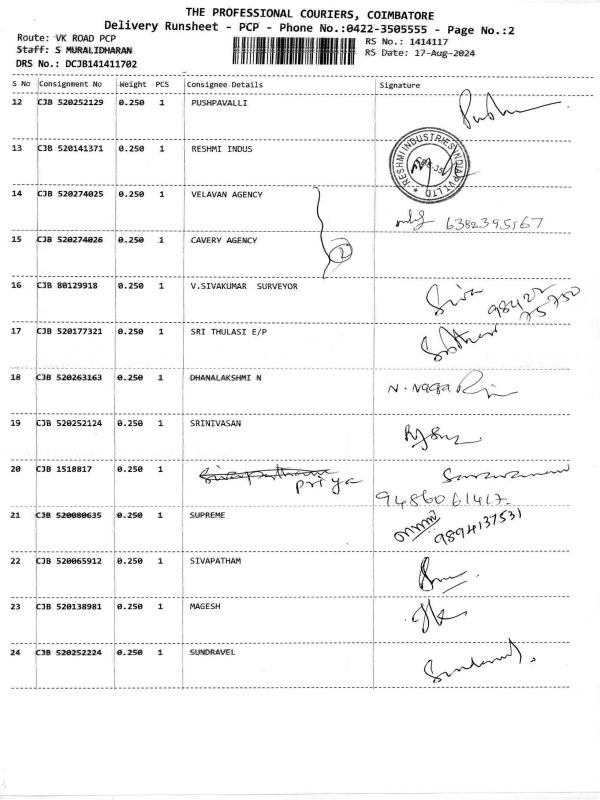 THE PROFESSIONAL COURIERS, COIMBATORE
Delivery Runsheet - PCP - Phone No.:0422-3505555 - Page No.:2
Route: VK ROAD PCP
RS No.: 1414117
Staff: S MURALIDHARAN
RS Date: 17-Aug-2024
DRS No.: DCJB141411702
S No Consignment No Weight PCS Consignee Details Signature
12 CJB 520252129 0.250 1 PUSHPAVALLI
13 CJB 520141371 0.250 1 RESHMI INDUS
RESHMI INDUSTRIES INDIA PVT LTD
14 CJB 520274025 0.250 1 VELAVAN AGENCY
6382395167
15 CJB 520274026 0.250 1 CAVERY AGENCY
2
16 CJB 80129918 0.250 1 V.SIVAKUMAR SURVEYOR Siva 98422 75750
17 CJB 520177321 0.250 1 SRI THULASI E/P
18 CJB 520263163 0.250 1 DHANALAKSHMI N N. Naga
19 CJB 520252124 0.250 1 SRINIVASAN
20 CJB 1518817 0.250 1 priya
9486061417
21 CJB 520080635 0.250 1 SUPREME 9894137531
22 CJB 520065912 0.250 1 SIVAPATHAM
23 CJB 520138981 0.250 1 MAGESH
24 CJB 520252224 0.250 1 SUNDRAVEL